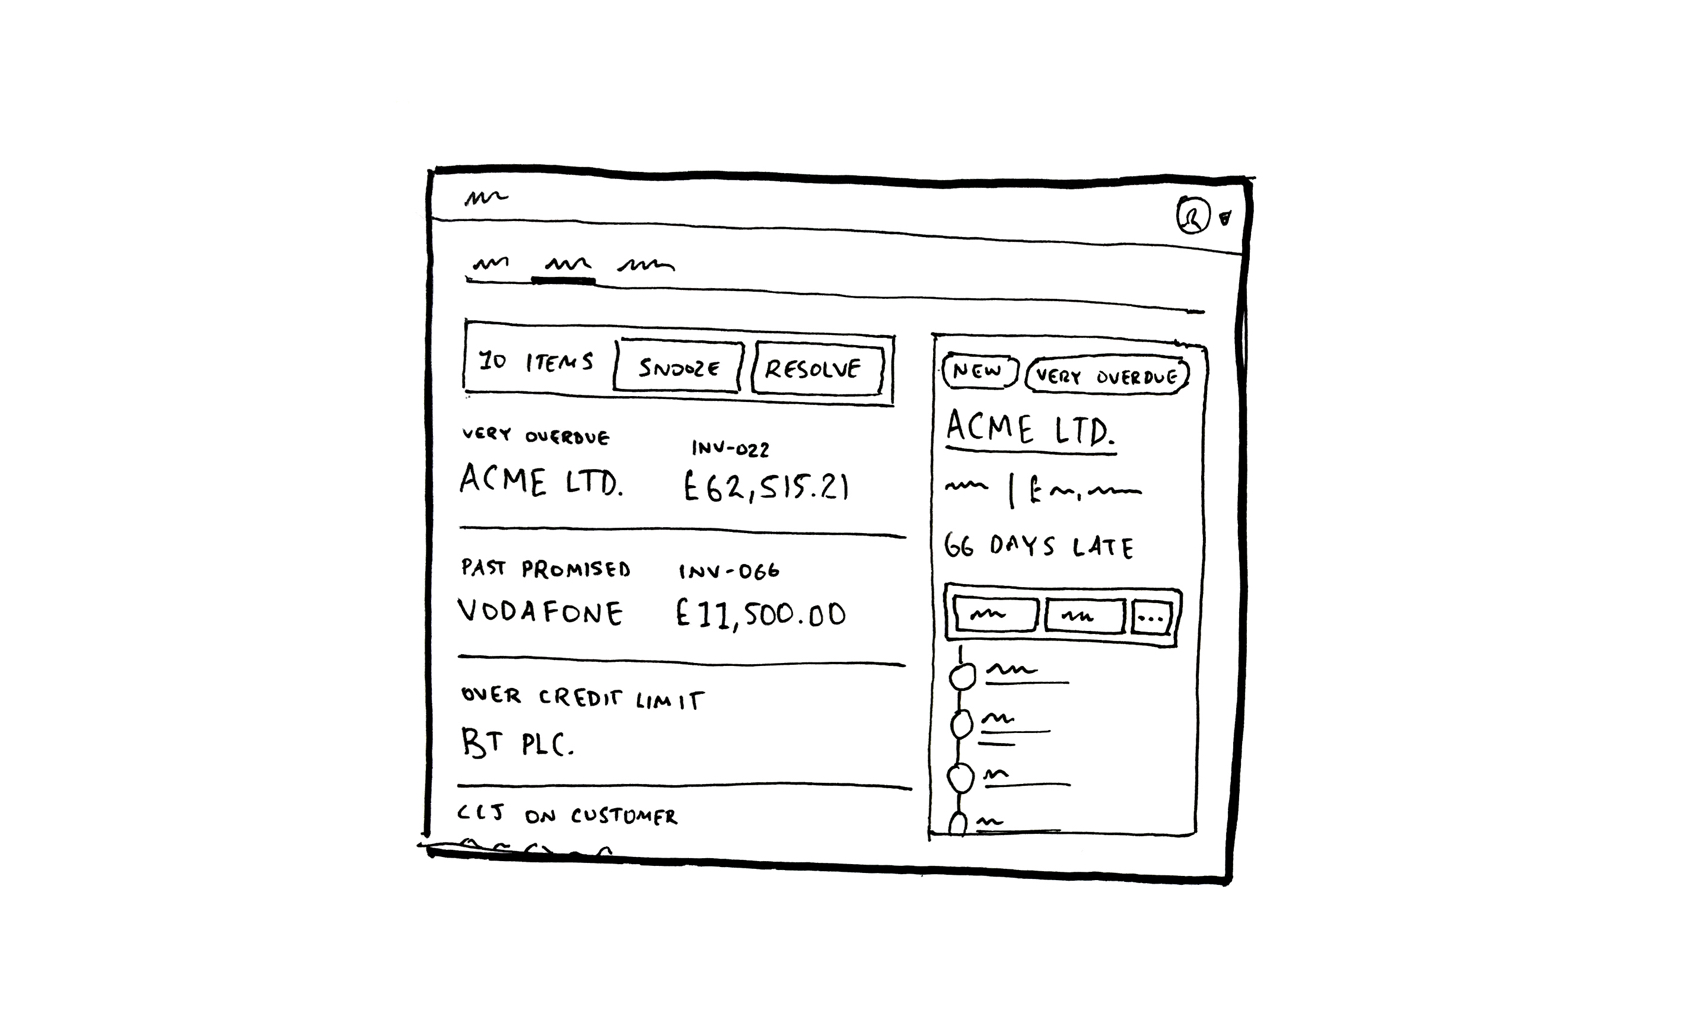 10 ITEMS SNOOZE RESOLVE
VERY OVERDUE INV-022
ACME LTD. £62,515.21
PAST PROMISED INV-066
VODAFONE £11,500.00
OVER CREDIT LIMIT
BT PLC.
CCJ ON CUSTOMER
NEW VERY OVERDUE
ACME LTD.
66 DAYS LATE
...